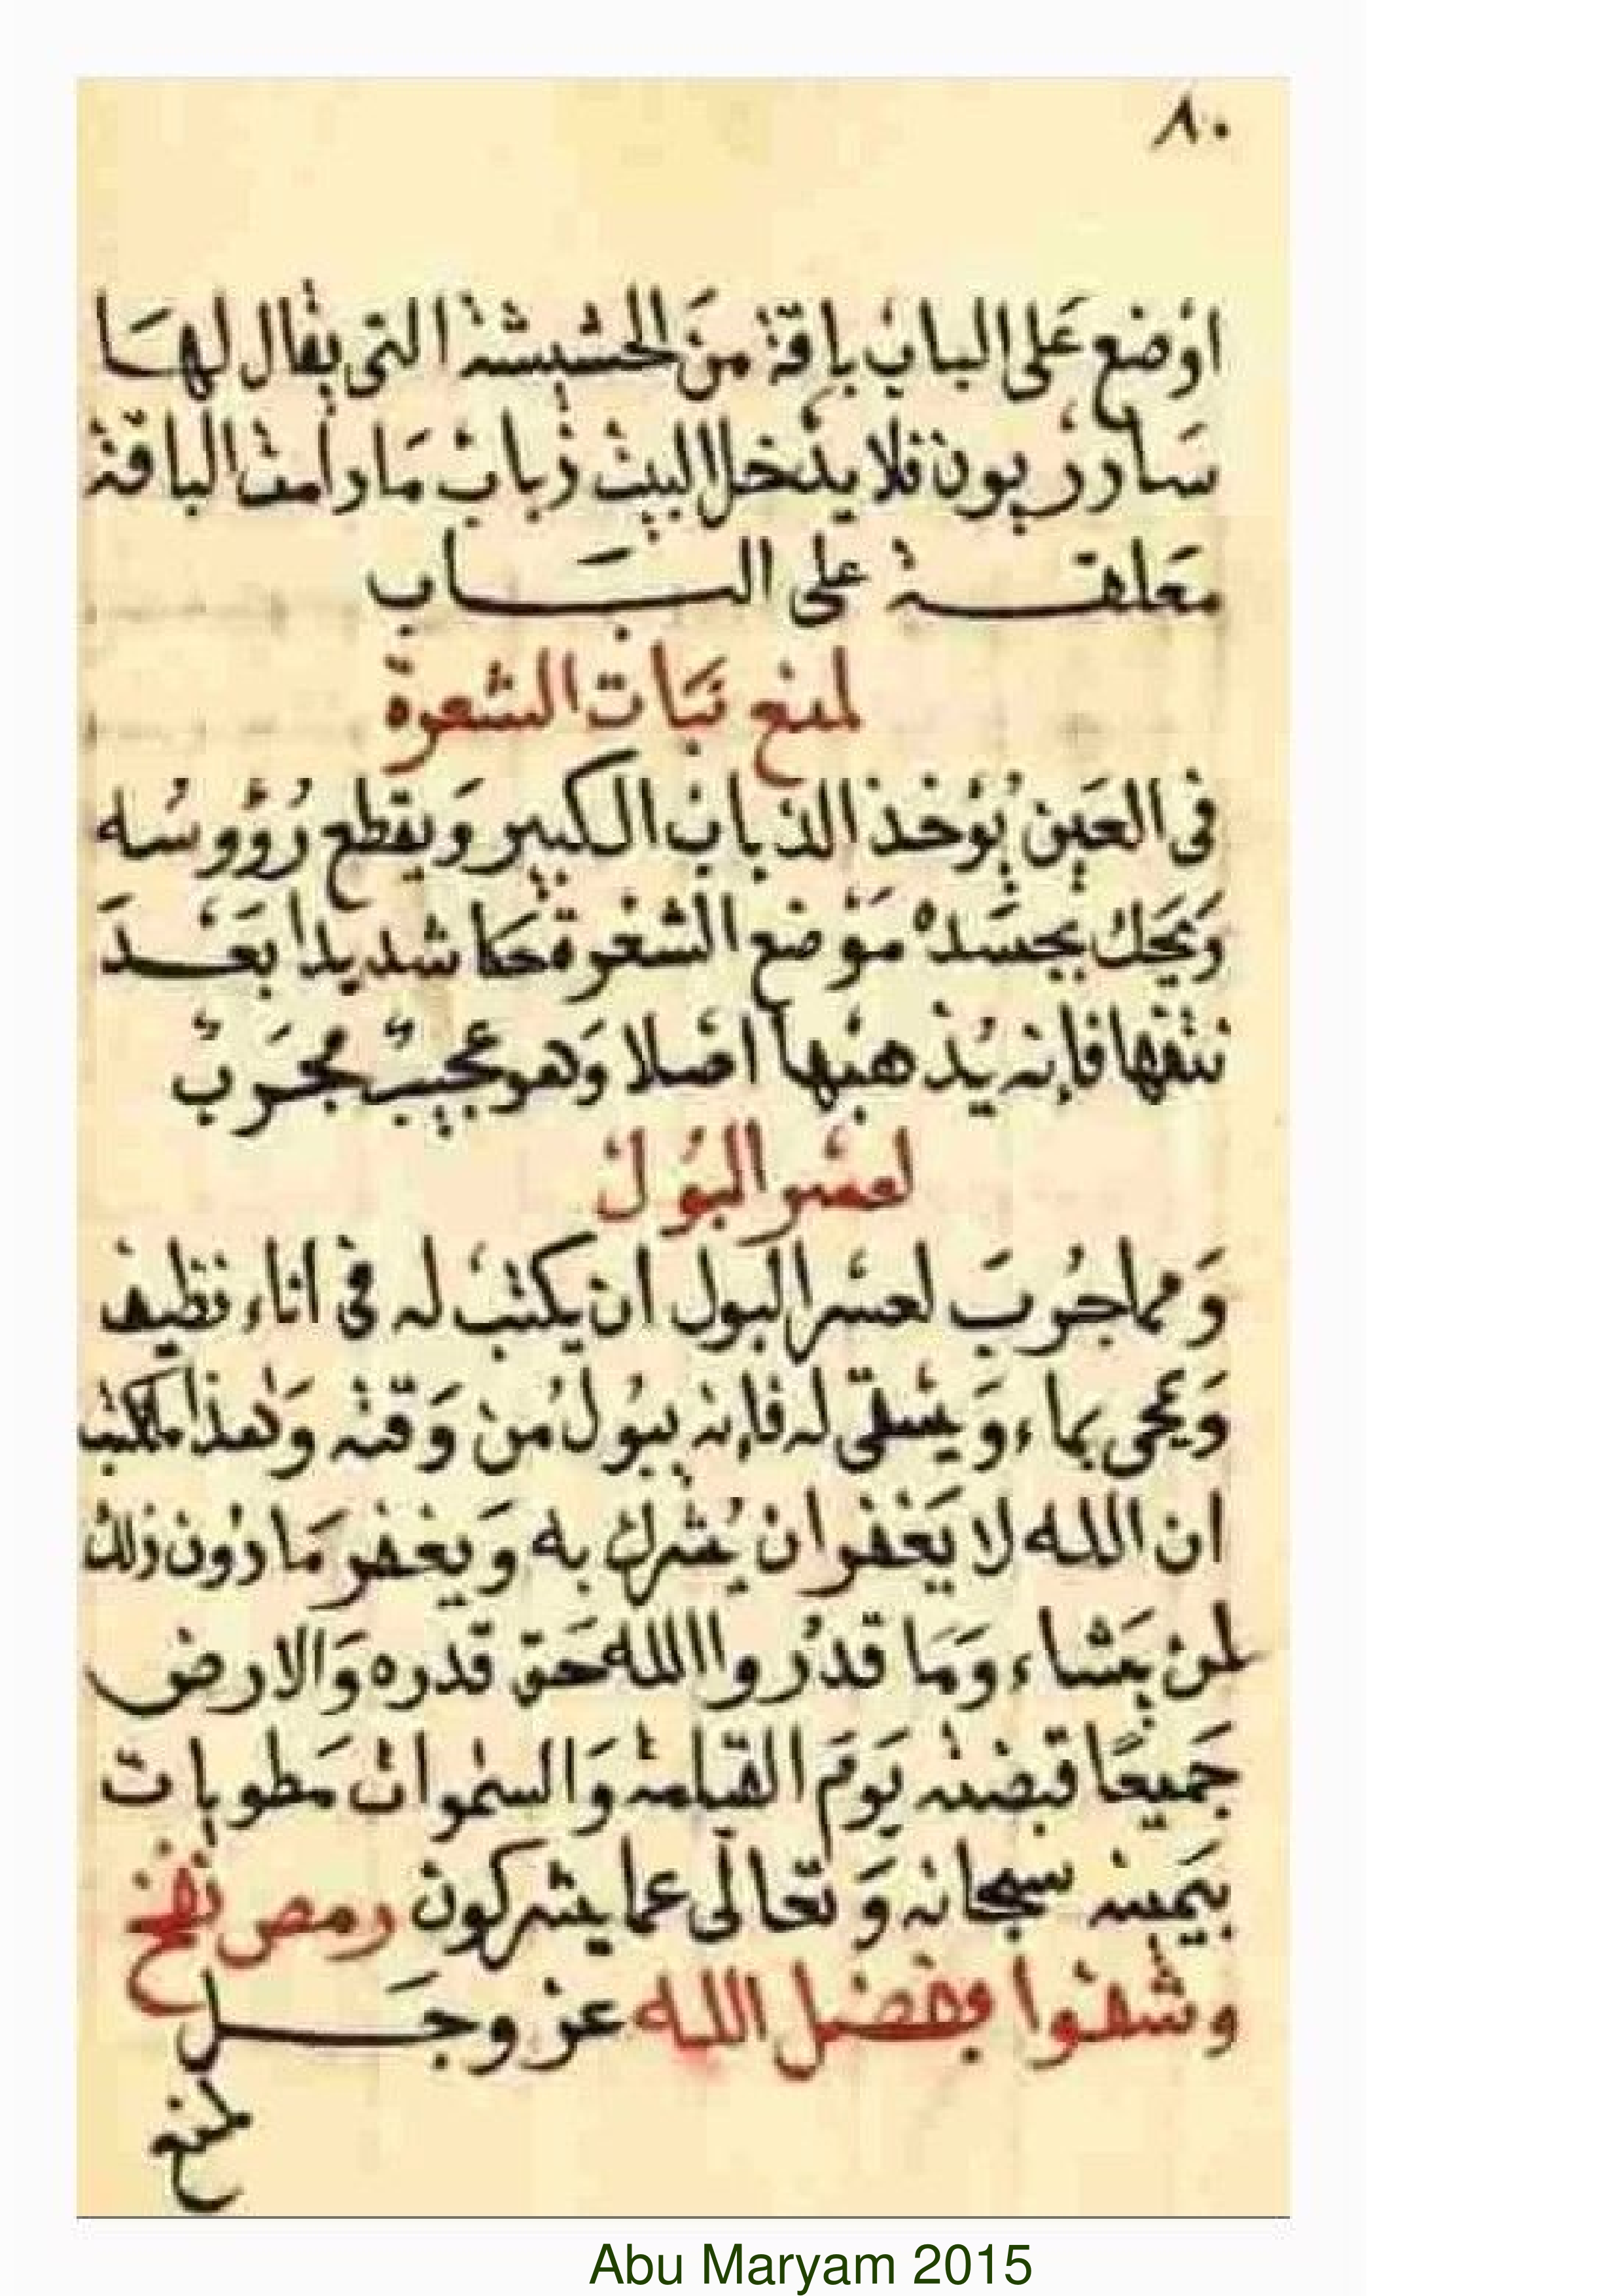 ٨٠
اوضع على الباب باقة من الحشيشة التى يقال لها
سادريون فلا يدخل البيت ذباب ما دامت الباقة
معلقة على الباب
لمنع نبات الشعرة
فى العين يُؤخذ الذباب الكبير وَيقطع رُؤوسُه
وَيحك بجسَده مَوْضع الشعْرة حكا شديدا بعْدَ
نتفها فإنه يُذهبها اصْلا وَهو عجيبٌ مجرَبٌ
لعسْر البُول
وَمما جُربَ لعسْر البول ان يكتبْ له فى اناء نظيف
وَيمحى بماء وَيسْقى له فإنه يبُولُ من وَقته وَهذا ما يكتب
ان الله لا يَغْفر ان يُشْرك به وَيغفر مَا دُون ذلك
لمن يَشاء وَمَا قدرُوا الله حَق قدره وَالارض
جَميعًا قبضته يَوَم القيٰمة وَالسمٰوات مَطويات
بيَمينه سبحانه وَ تعَالى عما يشركون رمص نفخ
وشفوا بفضل الله عز وجل
لمنع
Abu Maryam 2015